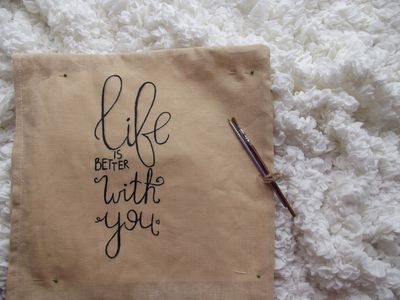 life
IS
BETTER
with
you.